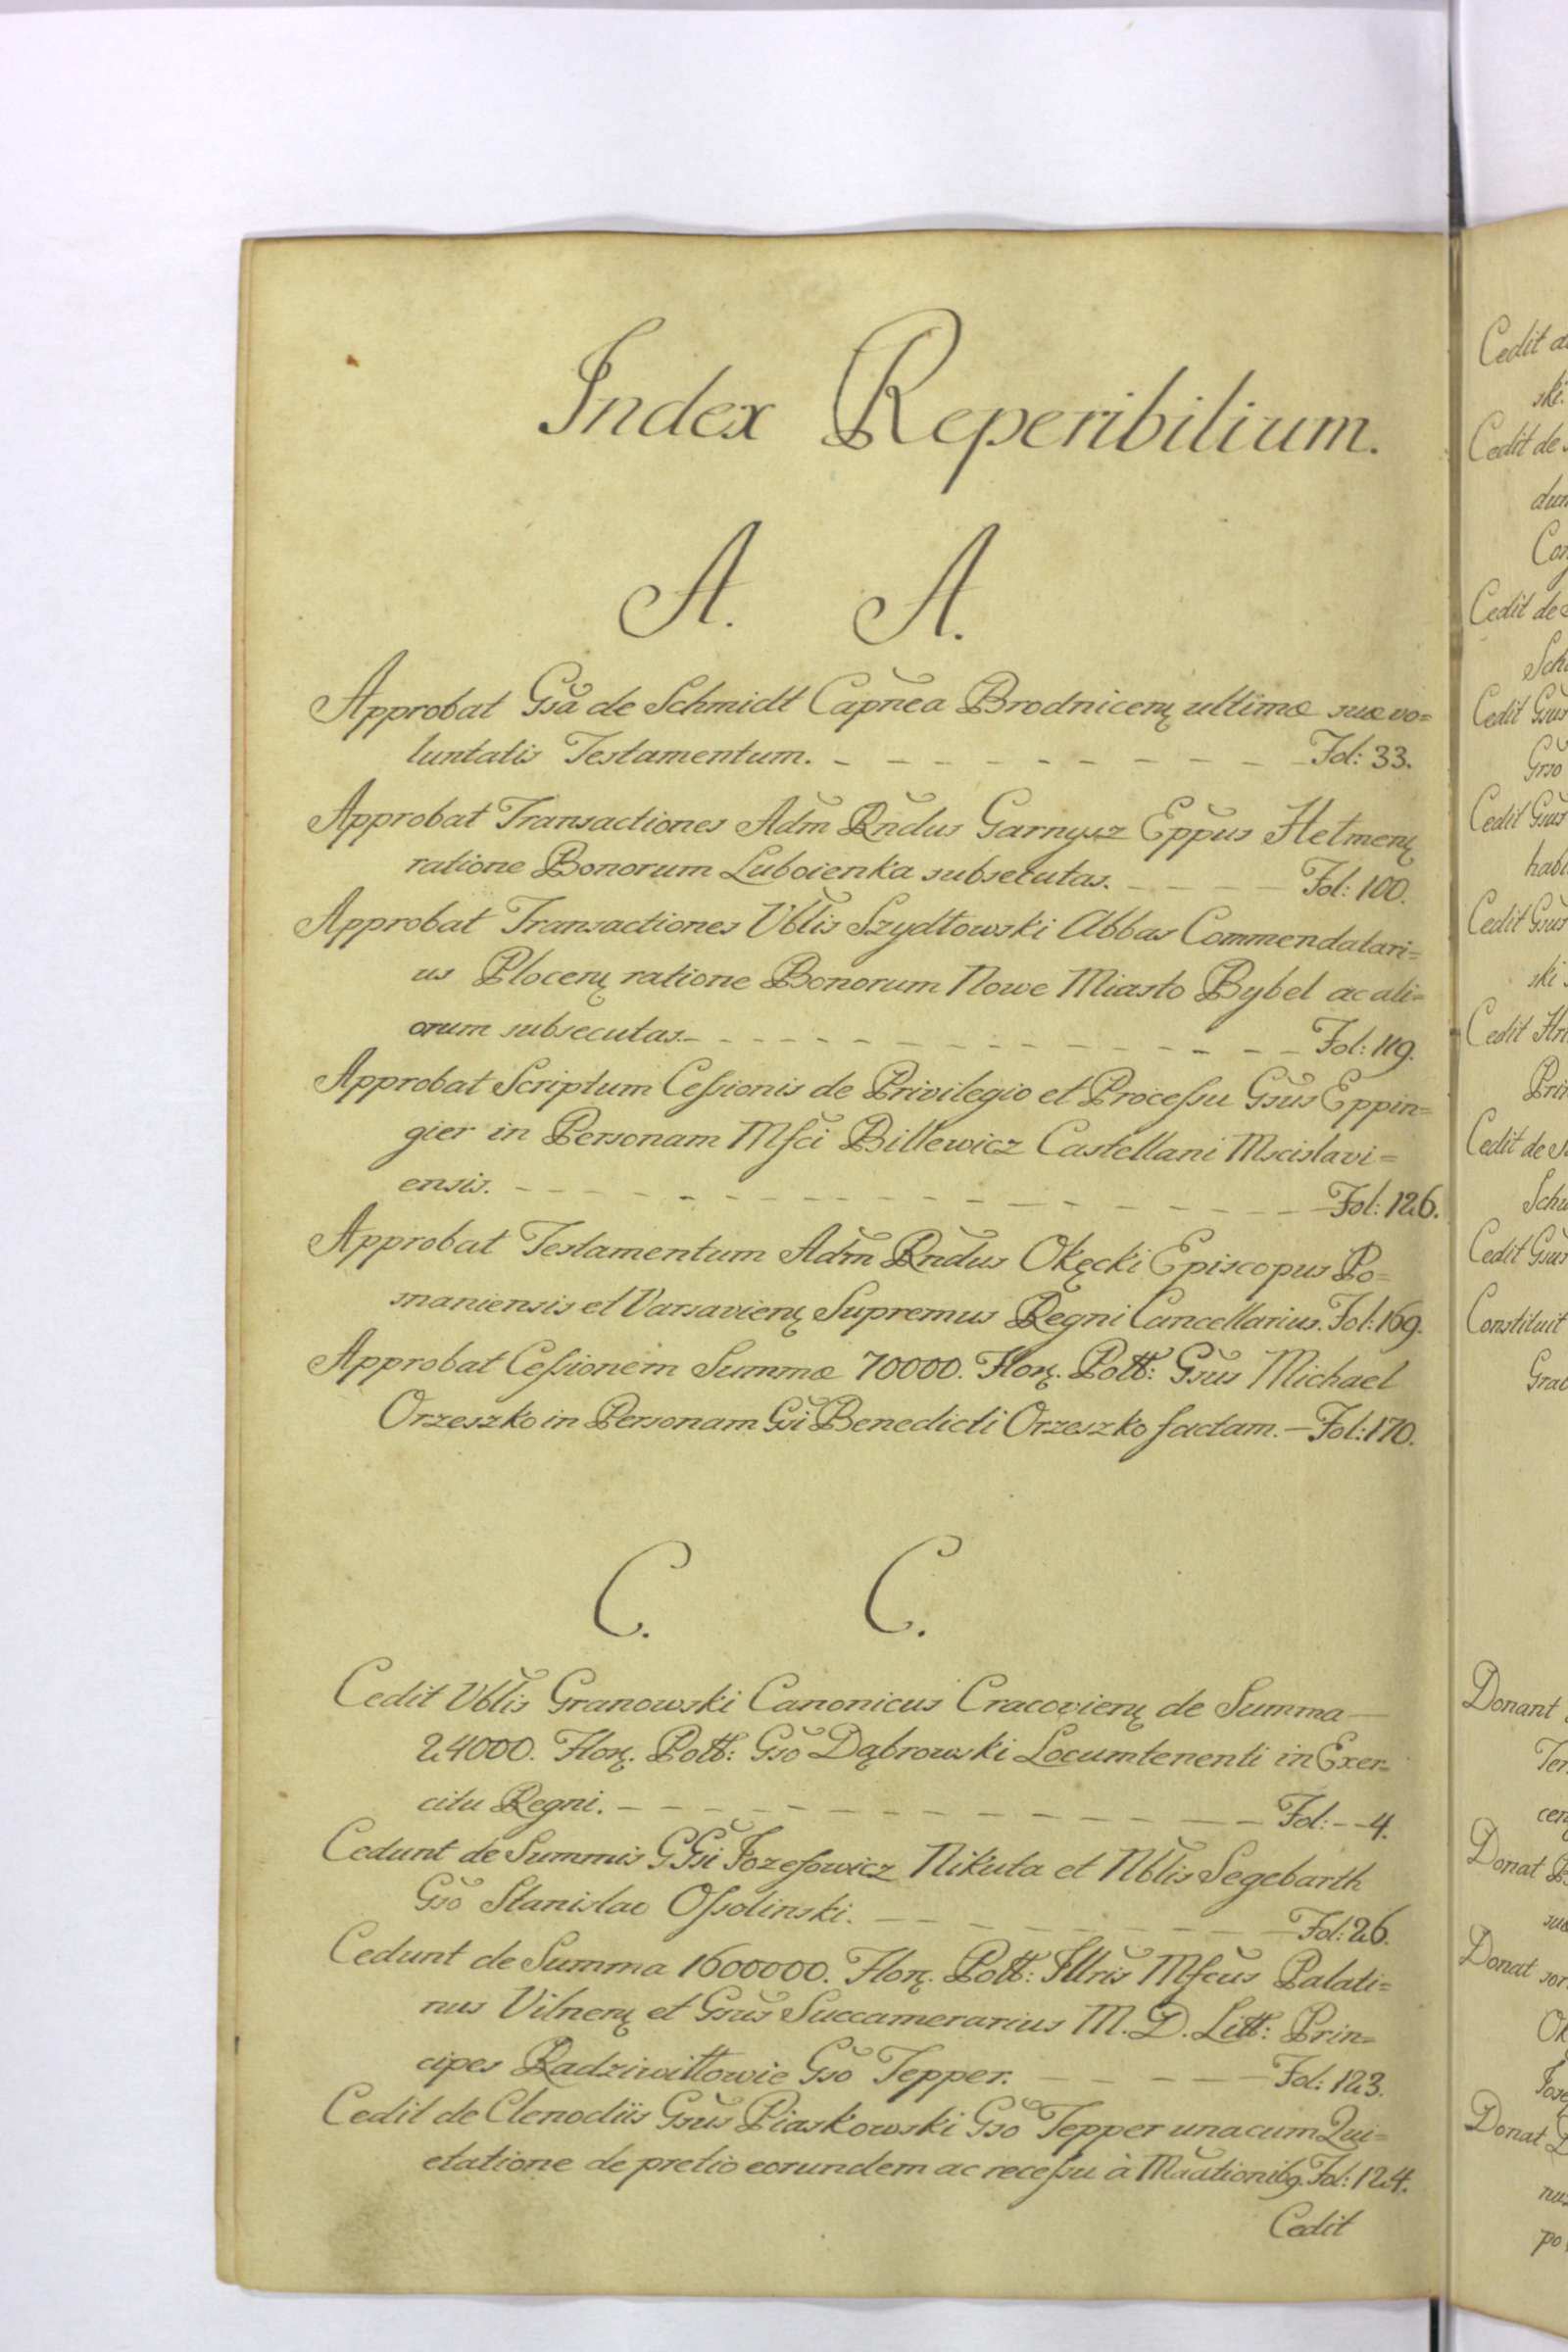 Index Reperibilium.
A. A.
Approbat Gsa de Schmidt Capnea Brodnicen ultimæ suæ vo=
luntatis Testamentum. - - - - - - - - - - Fol: 33.
Approbat Transactiones Adm Rndus Garnysz Eppus Helmen
ratione Bonorum Luboienka subsecutas. - - - - Fol: 100.
Approbat Transactiones Vblis Szydłowski Abbas Commendatari=
us Plocen ratione Bonorum Nowe Miasto Bybel ac ali=
orum subsecutas. - - - - - - - - - - - - - - Fol: 119.
Approbat Scriptum Cessionis de Privilegio et Processu Gsus Eppin=
gier in Personam Msci Billewicz Castellani Mscislavi=
ensis. - - - - - - - - - - - - - - - - Fol: 126.
Approbat Testamentum Adm Rndus Okęcki Episcopus Po=
snaniensis et Varsavien Supremus Regni Cancellarius. Fol: 169.
Approbat Cessionem Summæ 70000. Flor. Poll: Gsus Michael
Orzeszko in Personam Gsi Benedicti Orzeszko factam. - Fol: 170.
C. C.
Cedit Vblis Granowski Canonicus Cracovien de Summa
24000. Flor. Poll: Gso Dąbrowski Locumtenenti in Exer=
citu Regni. - - - - - - - - - - - - - Fol: - - 4.
Cedunt de Summis GGsi Jozefowicz Nikuta et Nblis Segebarth
Gso Stanislao Ossolinski. - - - - - - - - Fol: 26.
Cedunt de Summa 1600000. Flor. Poll: Illris Mscus Palati=
nus Vilnen et Gsus Succamerarius M. D. Litt: Prin=
cipes Radziwiłłowie Gso Tepper. - - - - - Fol: 123.
Cedit de Clenodiis Gsus Piaskowski Gso Tepper unacum Qui=
etatione de pretio eorundem ac recessu à Maationibq. Fol: 124.
Cedit